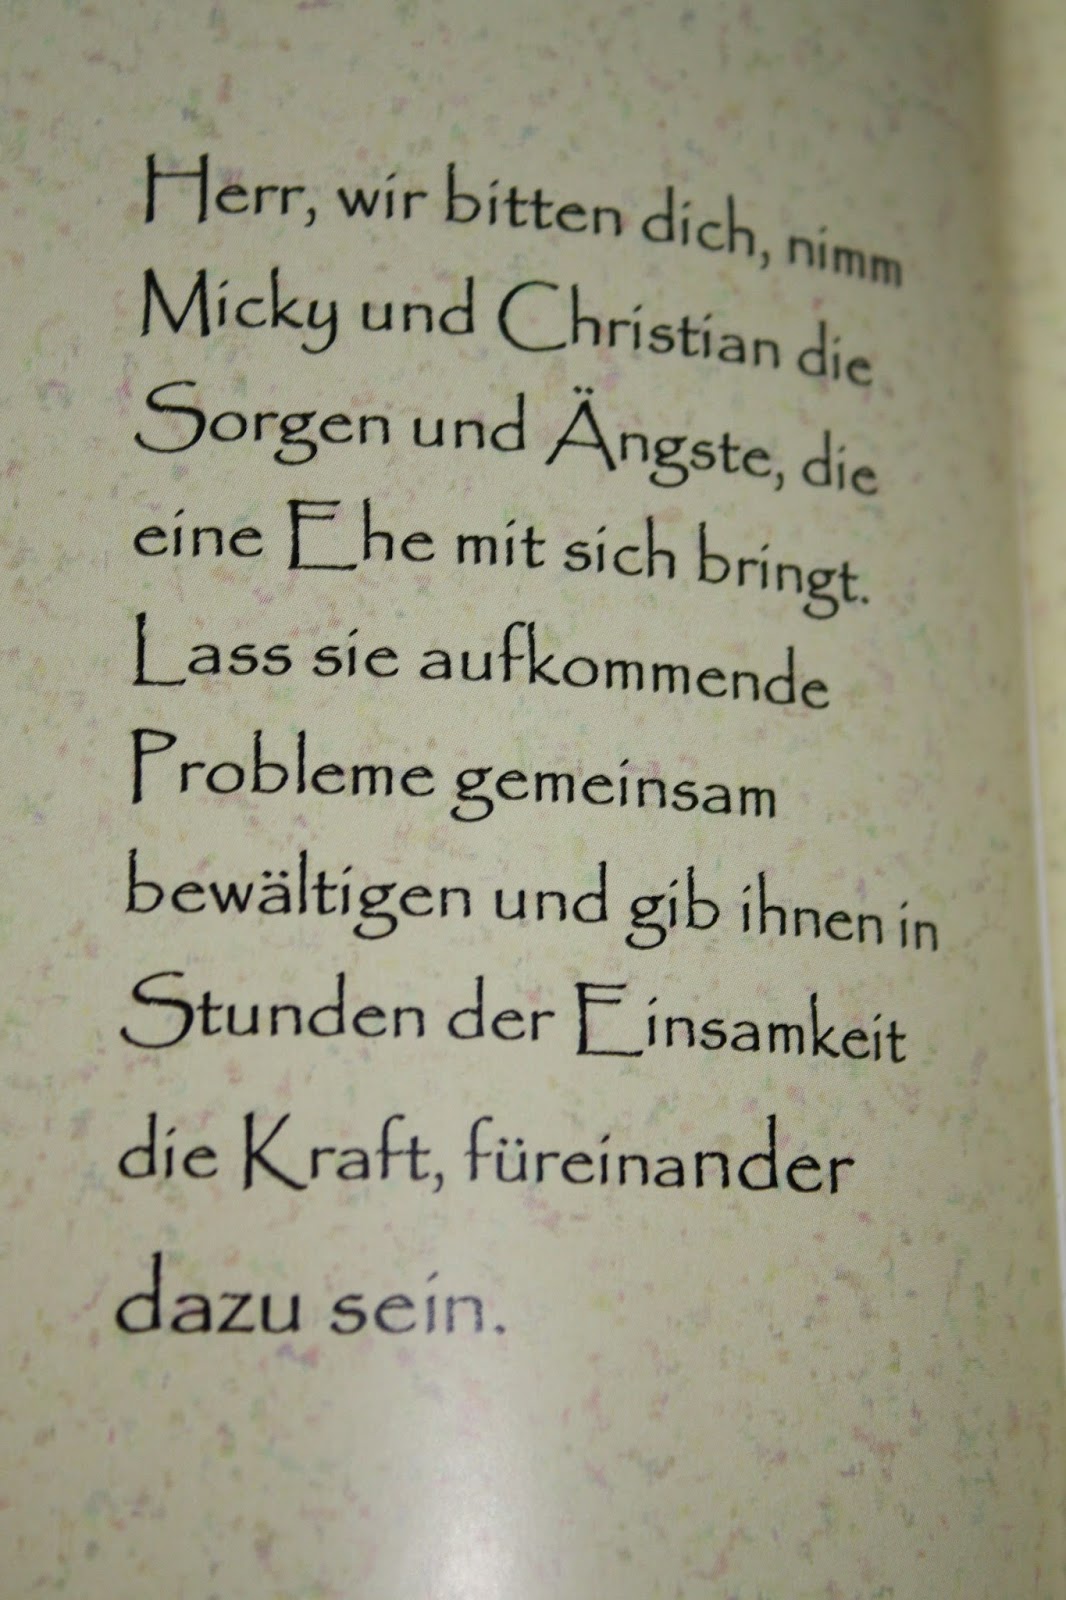 Herr, wir bitten dich, nimm
Micky und Christian die
Sorgen und Ängste, die
eine Ehe mit sich bringt.
Lass sie aufkommende
Probleme gemeinsam
bewältigen und gib ihnen in
Stunden der Einsamkeit
die Kraft, füreinander
dazu sein.